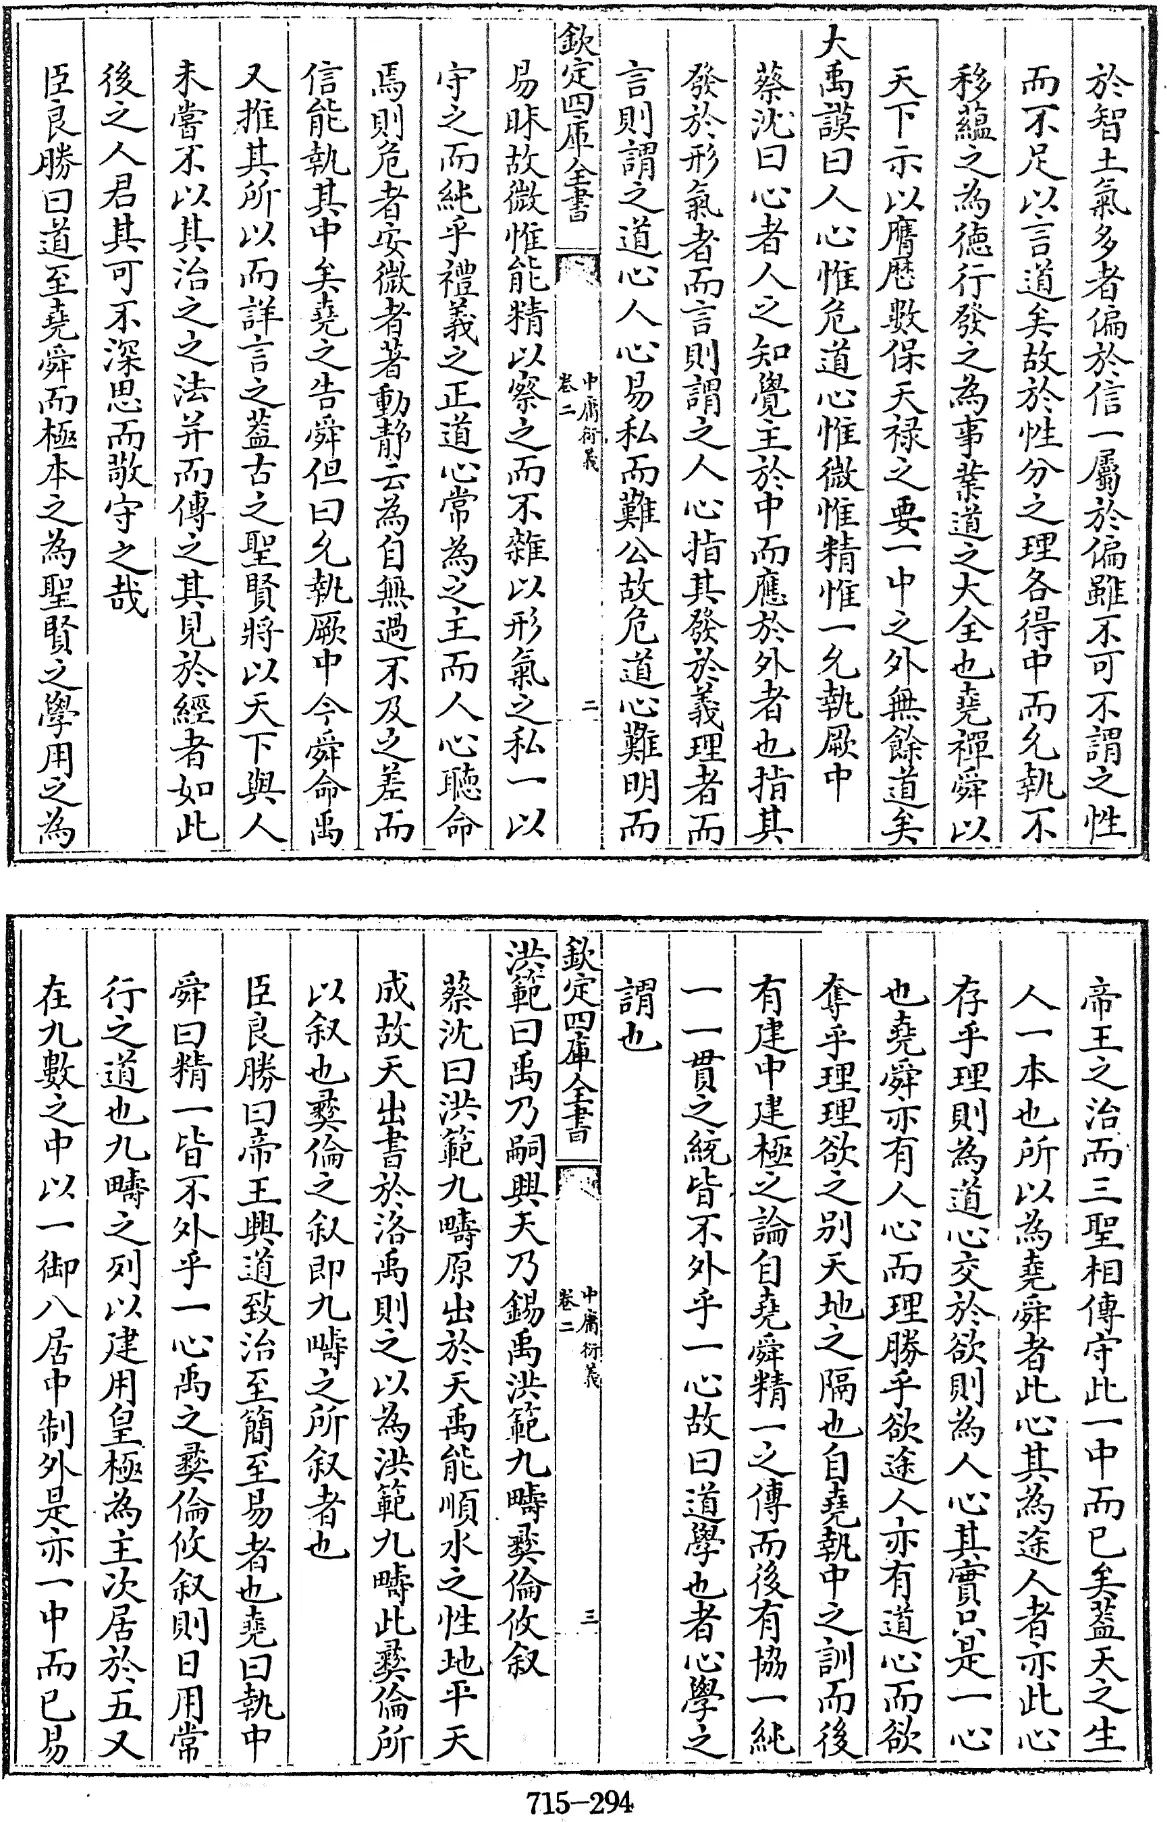 於智土氣多者偏於信一屬於偏雖不可不謂之性
而不足以言道矣故於性分之理各得中而允執不
移蘊之為德行發之為事業道之大全也堯禪舜以
天下示以膺歴數保天禄之要一中之外無餘道矣
大禹謨曰人心惟危道心惟微惟精惟一允執厥中
蔡沈曰心者人之知覺主於中而應於外者也指其
發於形氣者而言則謂之人心指其發於義理者而
言則謂之道心人心易私而難公故危道心難明而
欽定四庫全書
中庸衍義
卷二
二
易昧故微惟能精以察之而不雜以形氣之私一以
守之而純乎禮義之正道心常為之主而人心聽命
焉則危者安微者著動静云為自無過不及之差而
信能執其中矣堯之告舜但曰允執厥中今舜命禹
又推其所以而詳言之葢古之聖賢將以天下與人
未嘗不以其治之之法并而傳之其見於經者如此
後之人君其可不深思而敬守之哉
臣良勝曰道至堯舜而極本之為聖賢之學用之為
帝王之治而三聖相傳守此一中而已矣葢天之生
人一本也所以為堯舜者此心其為途人者亦此心
存乎理則為道心交於欲則為人心其實只是一心
也堯舜亦有人心而理勝乎欲途人亦有道心而欲
奪乎理理欲之别天地之隔也自堯執中之訓而後
有建中建極之論自堯舜精一之傳而後有協一純
一一貫之統皆不外乎一心故曰道學也者心學之
謂也
欽定四庫全書
中庸衍義
卷二
三
洪範曰禹乃嗣興天乃錫禹洪範九疇彝倫攸叙
蔡沈曰洪範九疇原出於天禹能順水之性地平天
成故天出書於洛禹則之以為洪範九疇此彝倫所
以叙也彝倫之叙即九疇之所叙者也
臣良勝曰帝王興道致治至簡至易者也堯曰執中
舜曰精一皆不外乎一心禹之彝倫攸叙則日用常
行之道也九疇之列以建用皇極為主次居於五又
在九數之中以一御八居中制外是亦一中而已易
715-294